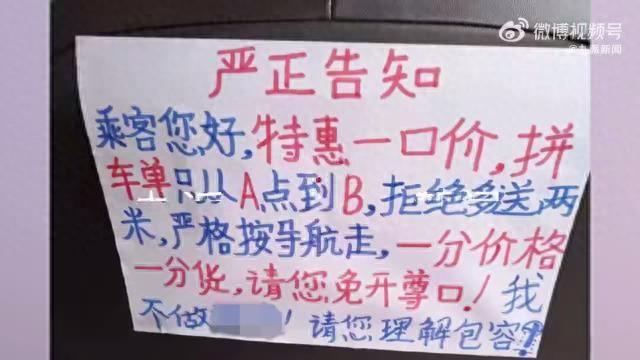 微博视频号
@九派新闻
严正告知
乘客您好,特惠一口价,拼
车单只从A点到B,拒绝多送两
米,严格按导航走,一分价格
一分货,请您免开尊口!我
不做 ! 请您理解包容!